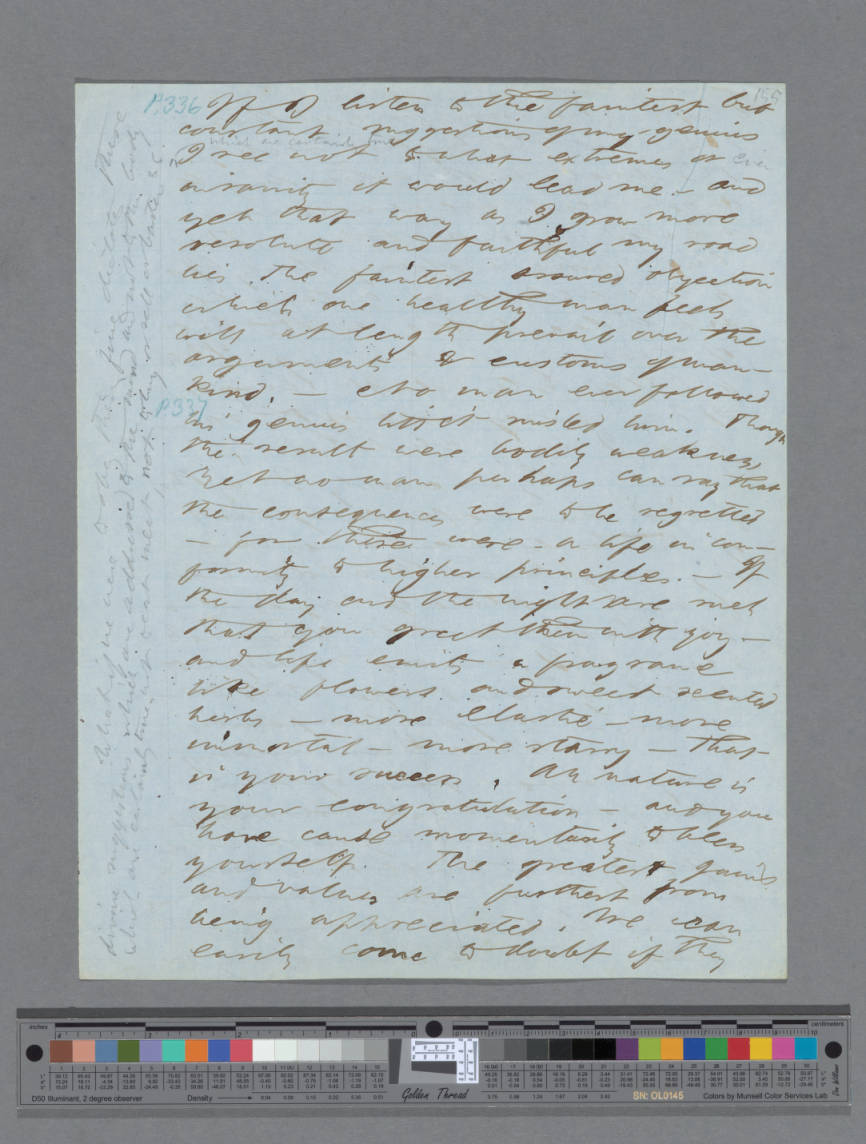 155
P.336 If I listen to the faintest but
constant suggestions of my genius
which are certainly true
I see not to what extremes or even
insanity it would lead me – and
yet that way as I grow more
resolute and faithful my road
lies. The faintest assured objection
which one healthy man feels
will at length prevail over the
arguments & customs of man–
kind. – No man ever followed
P.337
his genius till it misled him. Though
the result were bodily weakness,
Yet no man perhaps can say that
the consequences were to be regretted
– for these were a life in con–
formity to higher principles. – If
the day and the night are such
that you greet them with joy –
and life emits a fragrance
like flowers and sweet scented
herbs – more elastic – more
immortal – more starry – That
is your success. All nature is
your congratulation – and you
have cause momentarily to bless
yourself. The greatest gains
and values are furthest from
being appreciated. We can
easily come to doubt if they
What if we were to obey these fine dictates These
divine suggestions which are addressed to the mind and not to the body
which are certainly true – not to eat meat not to buy or sell or barter &c